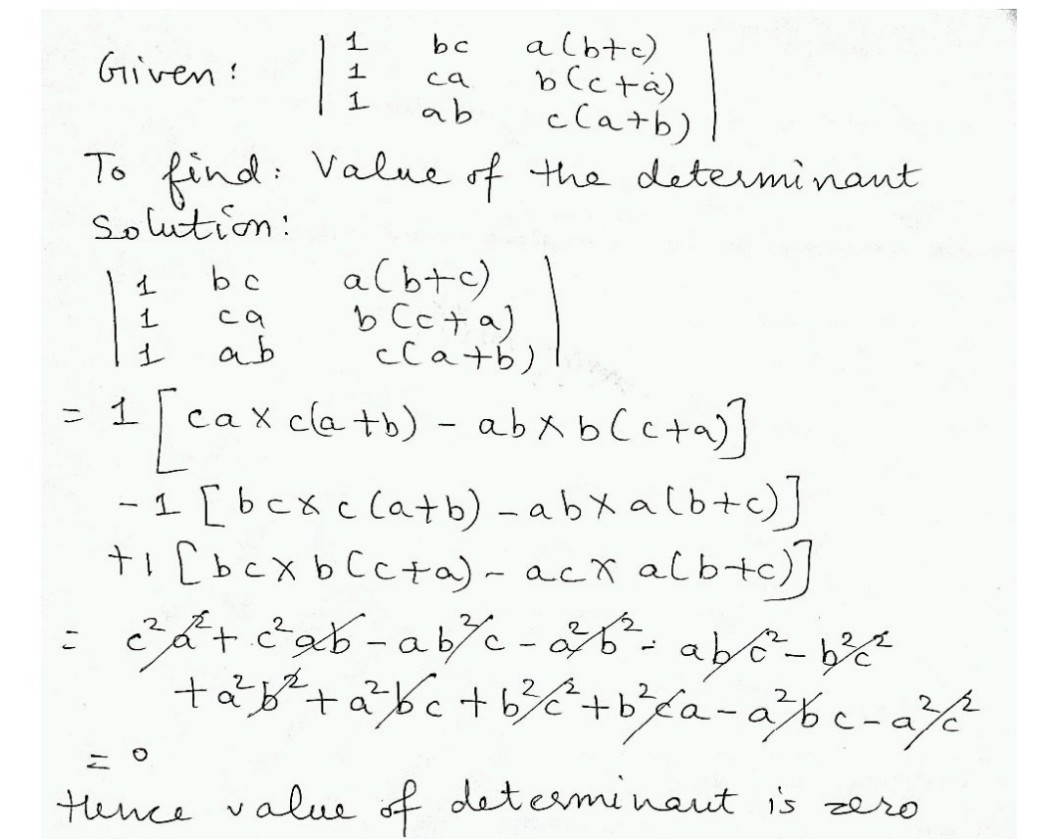 Given: | 1 bc a(b+c) |
| 1 ca b(c+a) |
| 1 ab c(a+b) |
To find: Value of the determinant
Solution:
| 1 bc a(b+c) |
| 1 ca b(c+a) |
| 1 ab c(a+b) |
= 1 [ca × c(a+b) - ab × b(c+a)]
-1 [bc × c(a+b) - ab × a(b+c)]
+1 [bc × b(c+a) - ac × a(b+c)]
= c²a² + c²ab - ab²c - a²b² - abc² - b²c²
+ a²b² + a²bc + b²c² + b²ca - a²bc - a²c²
= 0
Hence value of determinant is zero